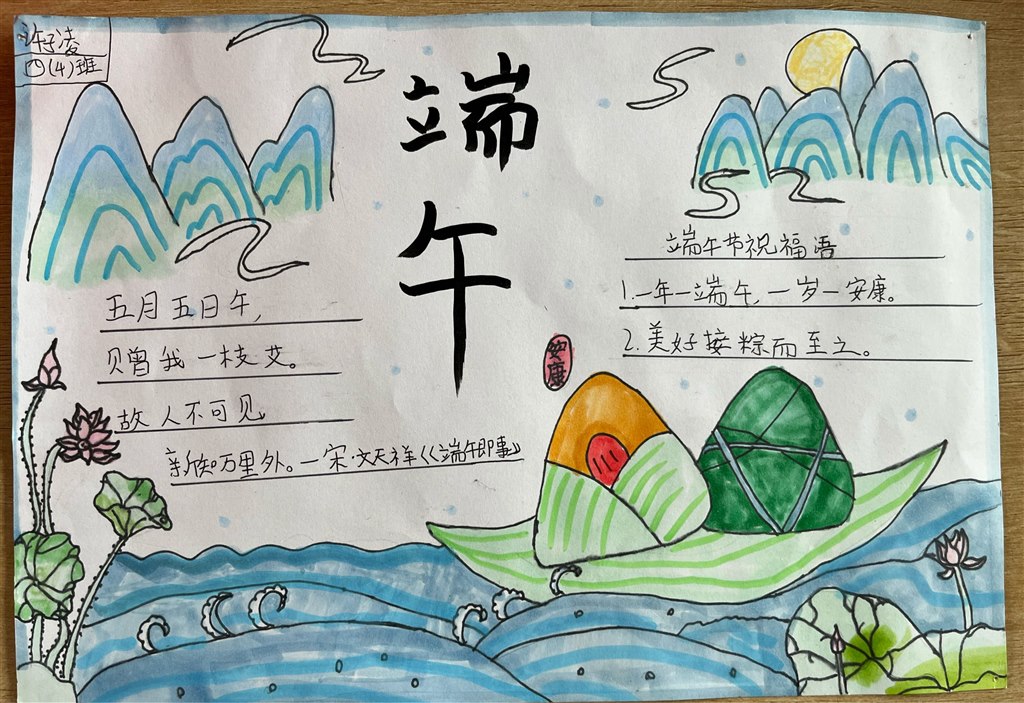 许子凌
四(4)班
端午
五月五日午,
赠我一枝艾。
故人不可见,
新知万里外。一宋·文天祥《端午即事》
端午节祝福语
1.一年一端午,一岁一安康。
2.美好接粽而至之。
安康